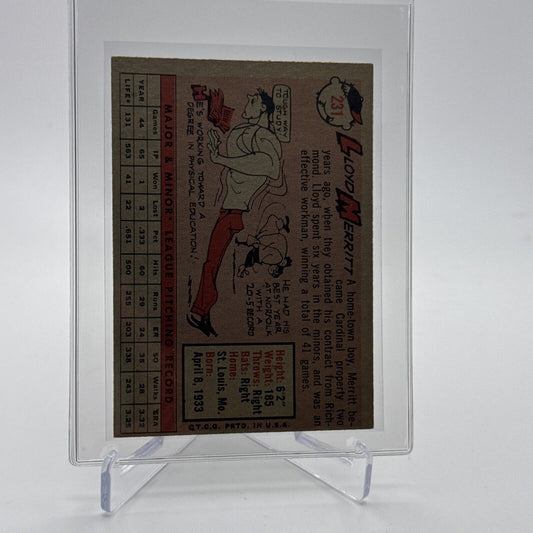 231
LLOYD MERRITT A home-town boy, Merritt be-
came Cardinal property two
years ago, when they obtained his contract from Rich-
mond. Lloyd spent six years in the minors, and was an
effective workman, winning a total of 41 games.
TOUGH WAY
TO STUDY!
HE'S WORKING TOWARD A
DEGREE IN PHYSICAL EDUCATION!
HE HAD HIS
BEST YEAR
AT NORFOLK
WITH A
20-5 RECORD
Height: 6'2"
Weight: 185
Throws: Right
Bats: Right
Home:
St. Louis, Mo.
Born:
April 8, 1933
MAJOR & MINOR LEAGUE PITCHING RECORD
Games IP Won Lost Pct Hits Runs ER SO Walks ERA
YEAR 44 65 1 2 .333 60 29 24 35 28 3.32
LIFE* 131 563 41 22 .651 500 255 203 338 243 3.25
©T.C.G. PRTD. IN U.S.A.